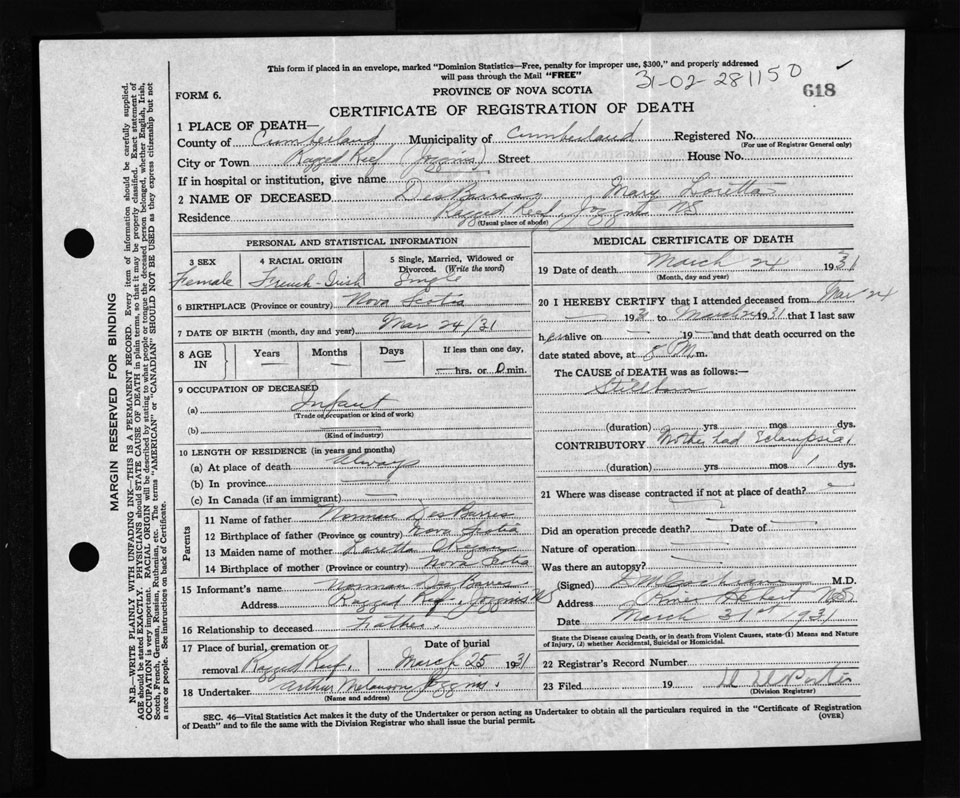 This form if placed in an envelope, marked "Dominion Statistics—Free, penalty for improper use, $300," and properly addressed
will pass through the Mail "FREE"
31-02-281150
618
PROVINCE OF NOVA SCOTIA
FORM 6.
CERTIFICATE OF REGISTRATION OF DEATH
1 PLACE OF DEATH—
County of Cumberland Municipality of Cumberland Registered No.
(For use of Registrar General only)
City or Town Ragged Reef (Joggins) Street House No.
If in hospital or institution, give name
2 NAME OF DECEASED DesBarres Mary Loretta
Residence Ragged Reef, Joggins NS
(Usual place of abode)
PERSONAL AND STATISTICAL INFORMATION
3 SEX 4 RACIAL ORIGIN 5 Single, Married, Widowed or
Divorced. (Write the word)
Female French-Irish Single
6 BIRTHPLACE (Province or country) Nova Scotia
7 DATE OF BIRTH (month, day and year) Mar 24/31
8 AGE IN Years Months Days If less than one day,
— — — — hrs. or 0 min.
9 OCCUPATION OF DECEASED
(a) Infant
(Trade or occupation or kind of work)
(b)
(Kind of industry)
10 LENGTH OF RESIDENCE (in years and months)
(a) At place of death always
(b) In province —
(c) In Canada (if an immigrant) —
Parents
11 Name of father Norman DesBarres
12 Birthplace of father (Province or country) Nova Scotia
13 Maiden name of mother Loretta
14 Birthplace of mother (Province or country) Nova Scotia
15 Informant's name Norman DesBarres
Address Ragged Reef, Joggins NS
16 Relationship to deceased Father
17 Place of burial, cremation or Date of burial
removal Ragged Reef, March 25 1931
18 Undertaker Arthur Joggins.
(Name and address)
MEDICAL CERTIFICATE OF DEATH
19 Date of death March 24 1931
(Month, day and year)
20 I HEREBY CERTIFY that I attended deceased from Mar 24
1931 to March 24 1931 that I last saw
her alive on — 19 — and that death occurred on the
date stated above, at 8 P.M. m.
The CAUSE of DEATH was as follows:—
Stillborn
(duration) yrs mos dys.
CONTRIBUTORY Mother had Eclampsia,
(duration) yrs mos 1 dys.
21 Where was disease contracted if not at place of death? —
Did an operation precede death? — Date of —
Nature of operation —
Was there an autopsy? —
(Signed) Cochrane M.D.
Address River Hebert N.S.
Date March 31st 1931
State the Disease causing Death, or in death from Violent Causes, state (1) Means and Nature
of Injury, (2) whether Accidental, Suicidal or Homicidal.
22 Registrar's Record Number
23 Filed 19
(Division Registrar)
SEC. 46—Vital Statistics Act makes it the duty of the Undertaker or person acting as Undertaker to obtain all the particulars required in the "Certificate of Registration
of Death" and to file the same with the Division Registrar who shall issue the burial permit.
(OVER)
MARGIN RESERVED FOR BINDING
N.B.—WRITE PLAINLY WITH UNFADING INK—THIS IS A PERMANENT RECORD. Every item of information should be carefully supplied.
AGE should be stated EXACTLY. PHYSICIANS should STATE CAUSE OF DEATH in plain terms, so that it may be properly classified. Exact statement of
OCCUPATION is very important. RACIAL ORIGIN will be described by stating to what people or tongue the deceased person belonged, whether English, Irish,
Scotch, French, German, Russian, Ruthenian, etc. The terms "AMERICAN" or "CANADIAN" SHOULD NOT BE USED as they express citizenship but not
a race or people. See instructions on back of Certificate.